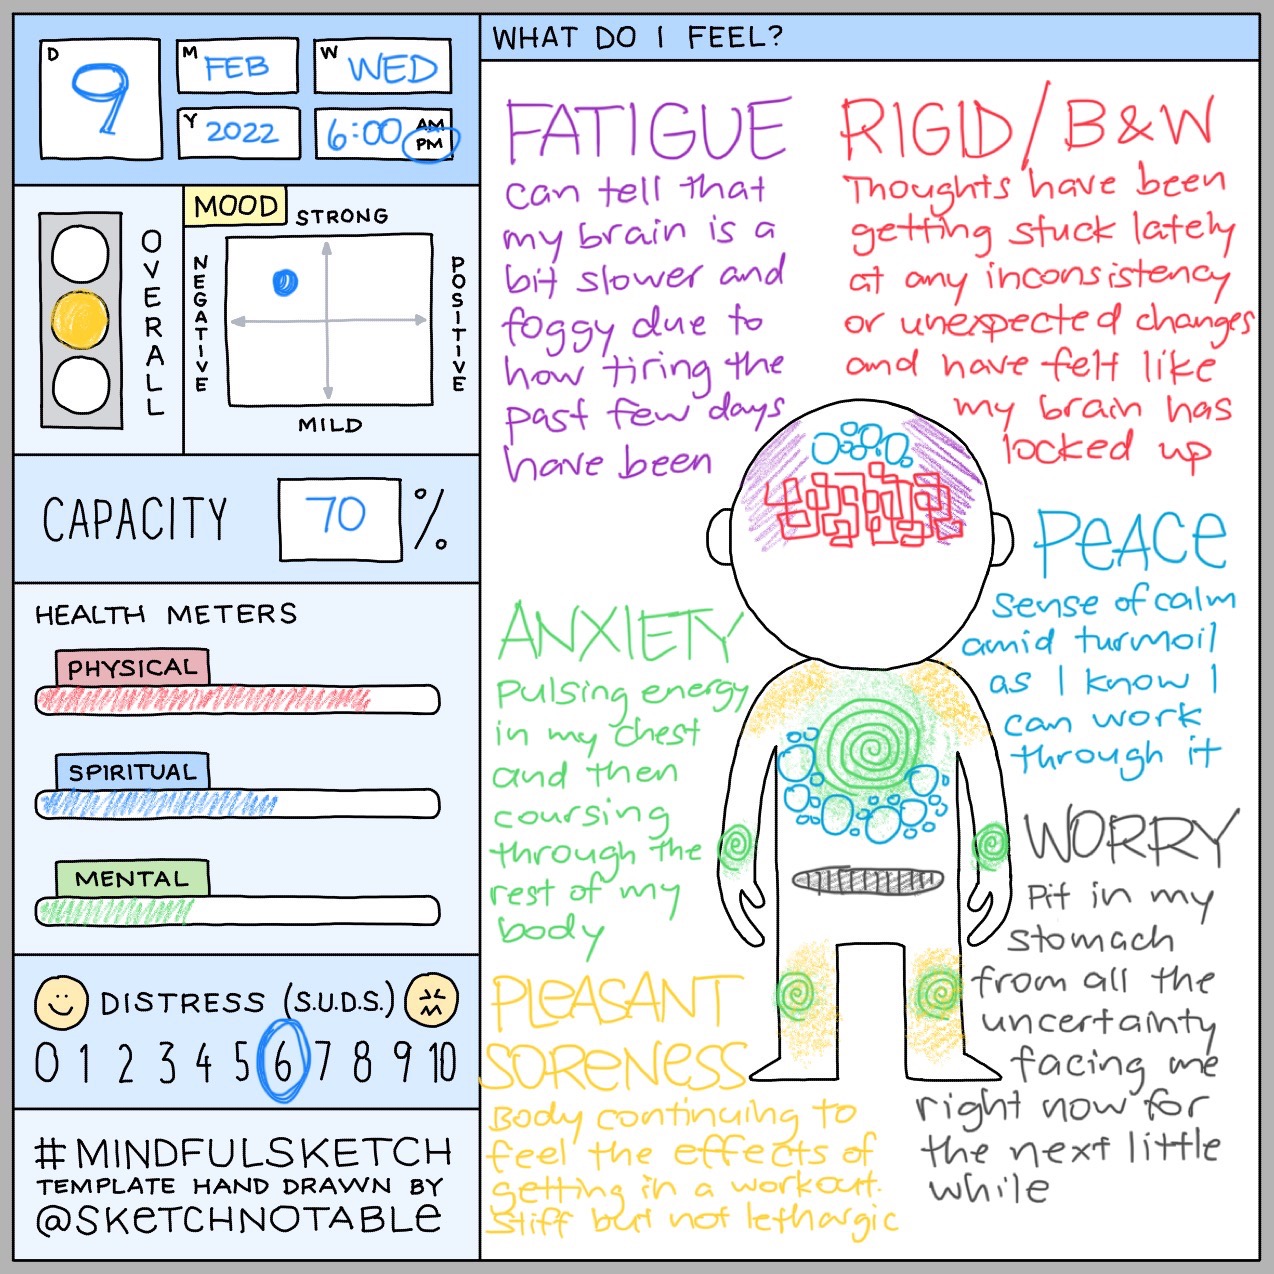 D 9
M FEB
W WED
Y 2022
6:00 AM
PM
OVERALL
MOOD
STRONG
NEGATIVE
POSITIVE
MILD
CAPACITY 70 %
HEALTH METERS
PHYSICAL
SPIRITUAL
MENTAL
DISTRESS (S.U.D.S.)
0 1 2 3 4 5 6 7 8 9 10
#MINDFULSKETCH
TEMPLATE HAND DRAWN BY
@SKETCHNOTABLE
WHAT DO I FEEL?
FATIGUE
can tell that
my brain is a
bit slower and
foggy due to
how tiring the
past few days
have been
RIGID/B&W
Thoughts have been
getting stuck lately
at any inconsistency
or unexpected changes
and have felt like
my brain has
locked up
PEACE
sense of calm
amid turmoil
as I know I
can work
through it
ANXIETY
pulsing energy
in my chest
and then
coursing
through the
rest of my
body
WORRY
Pit in my
stomach
from all the
uncertainty
facing me
right now for
the next little
while
PLEASANT
SORENESS
Body continuing to
feel the effects of
getting in a workout.
Stiff but not lethargic